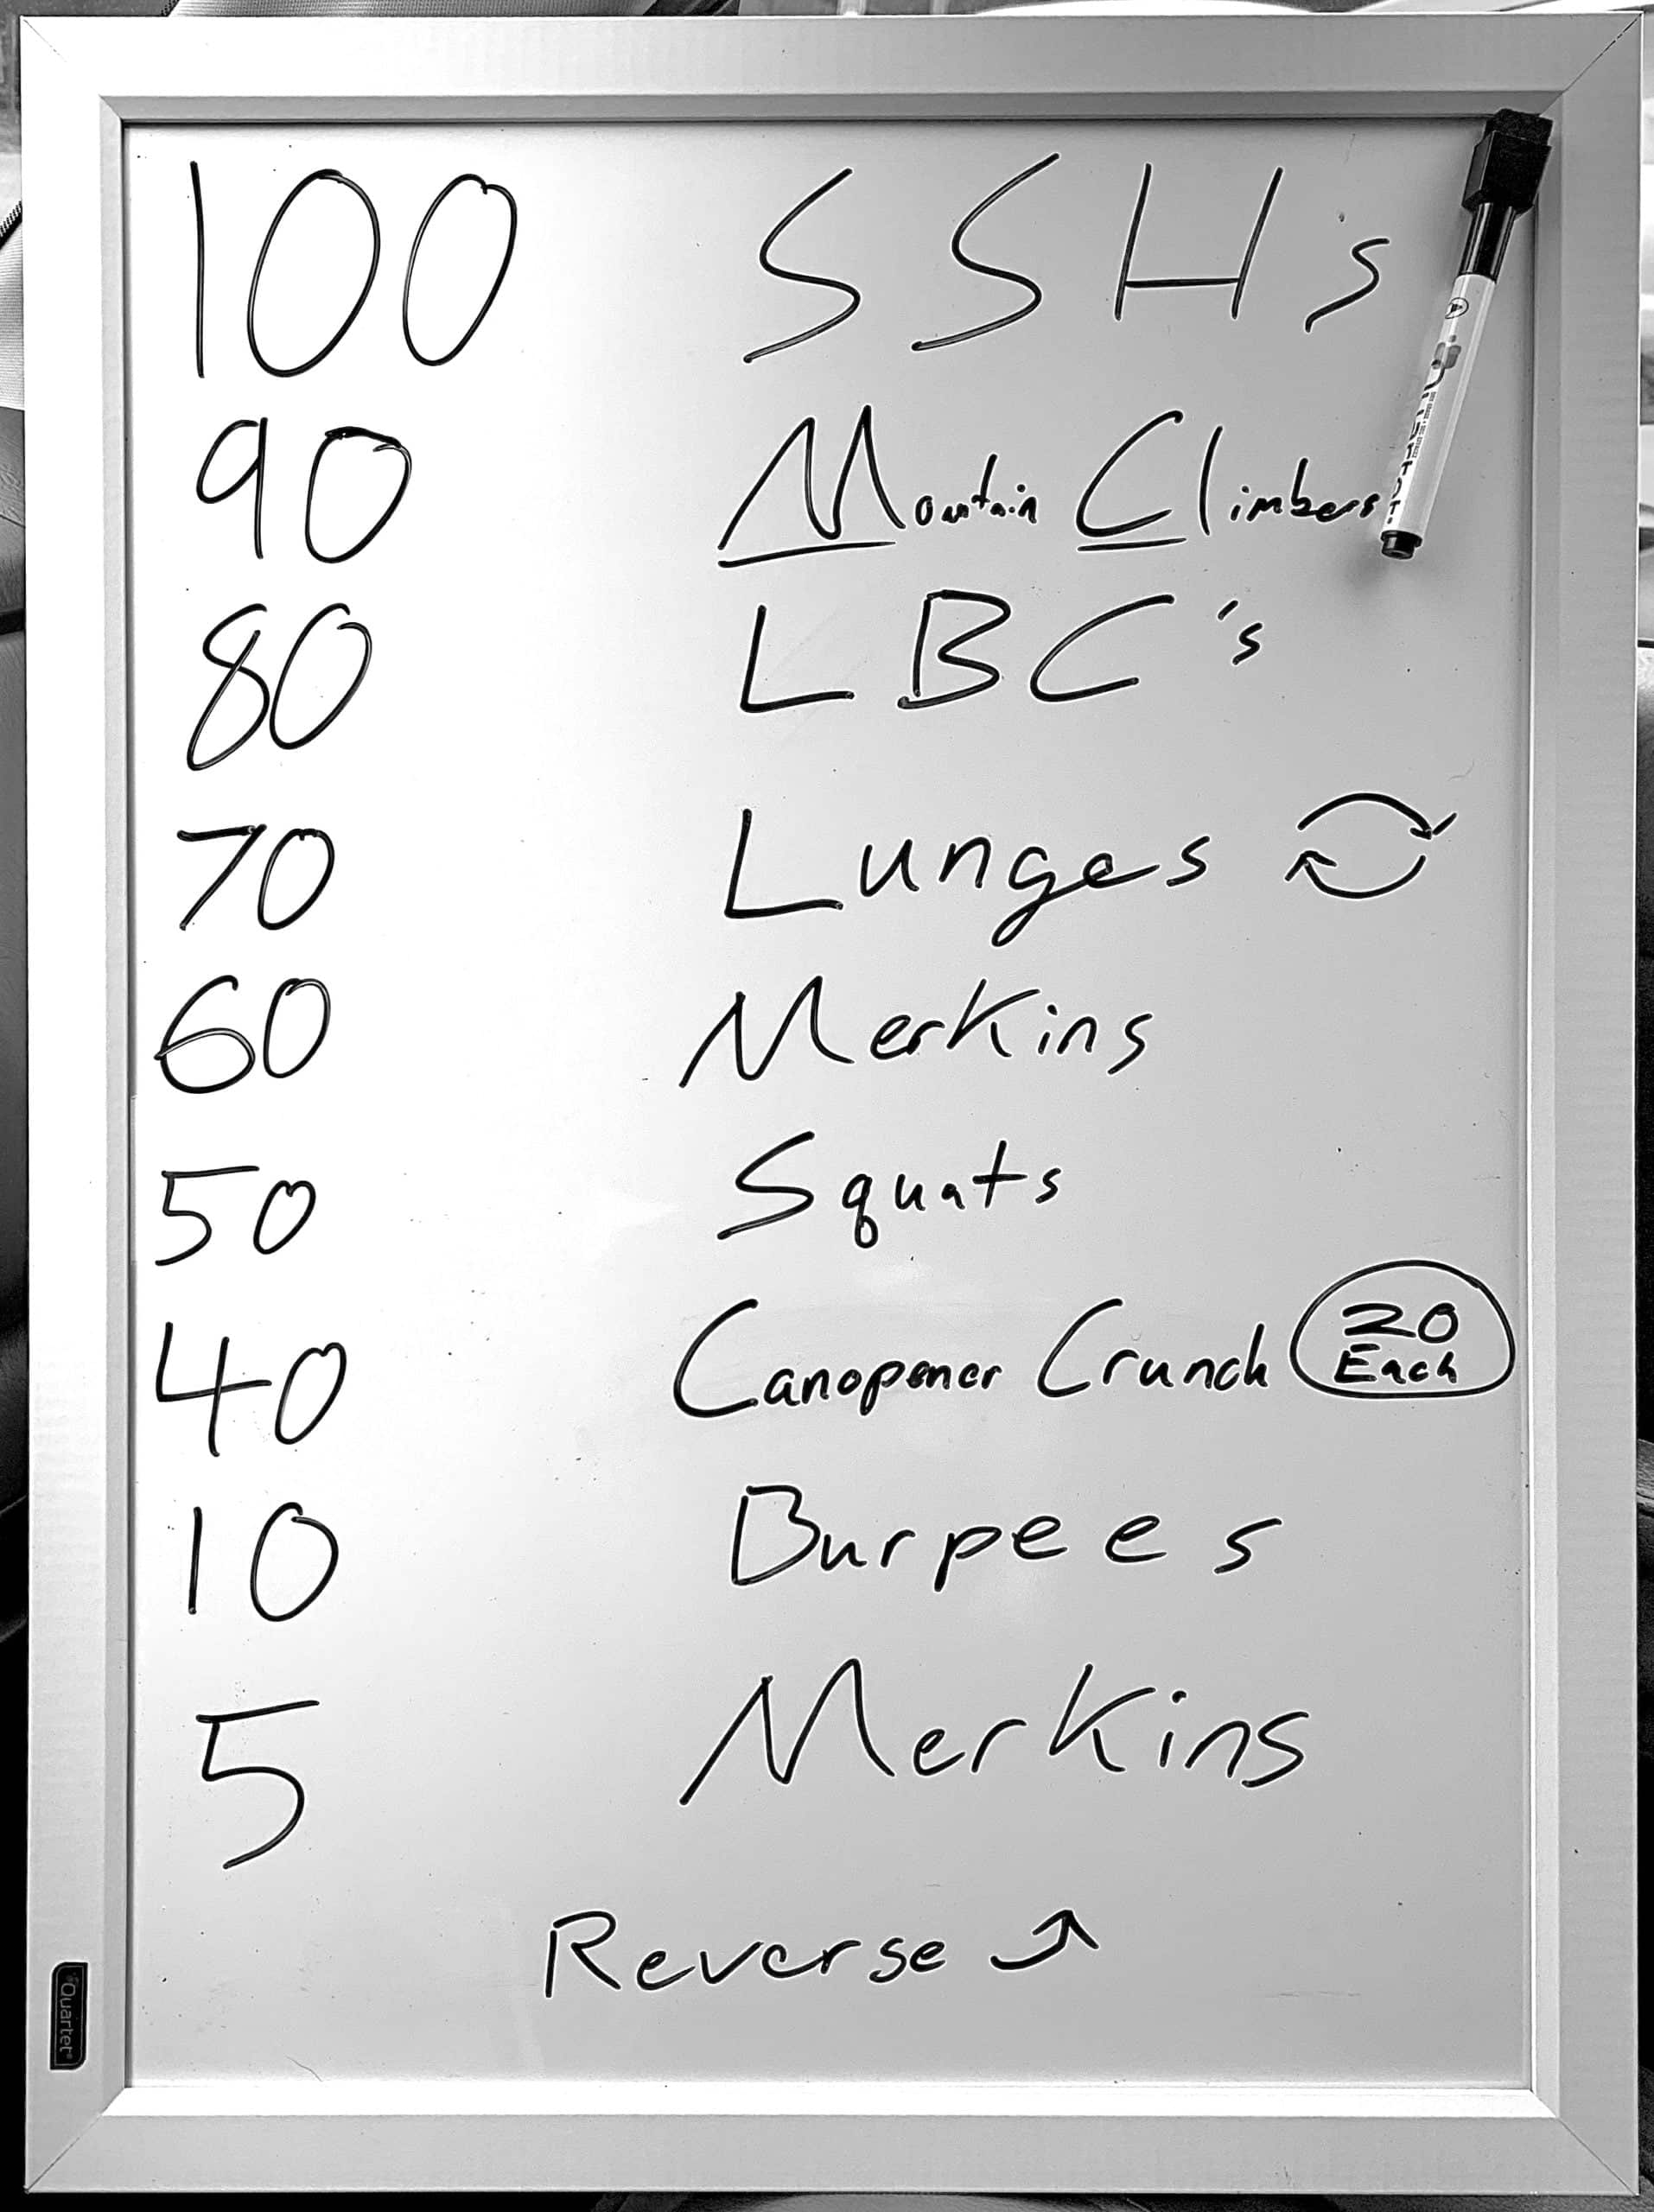 100 SSH's
90 Mountain Climbers
80 LBC's
70 Lunges
60 Merkins
50 Squats
40 Canopener Crunch 20 Each
10 Burpees
5 Merkins
Reverse
Quartet